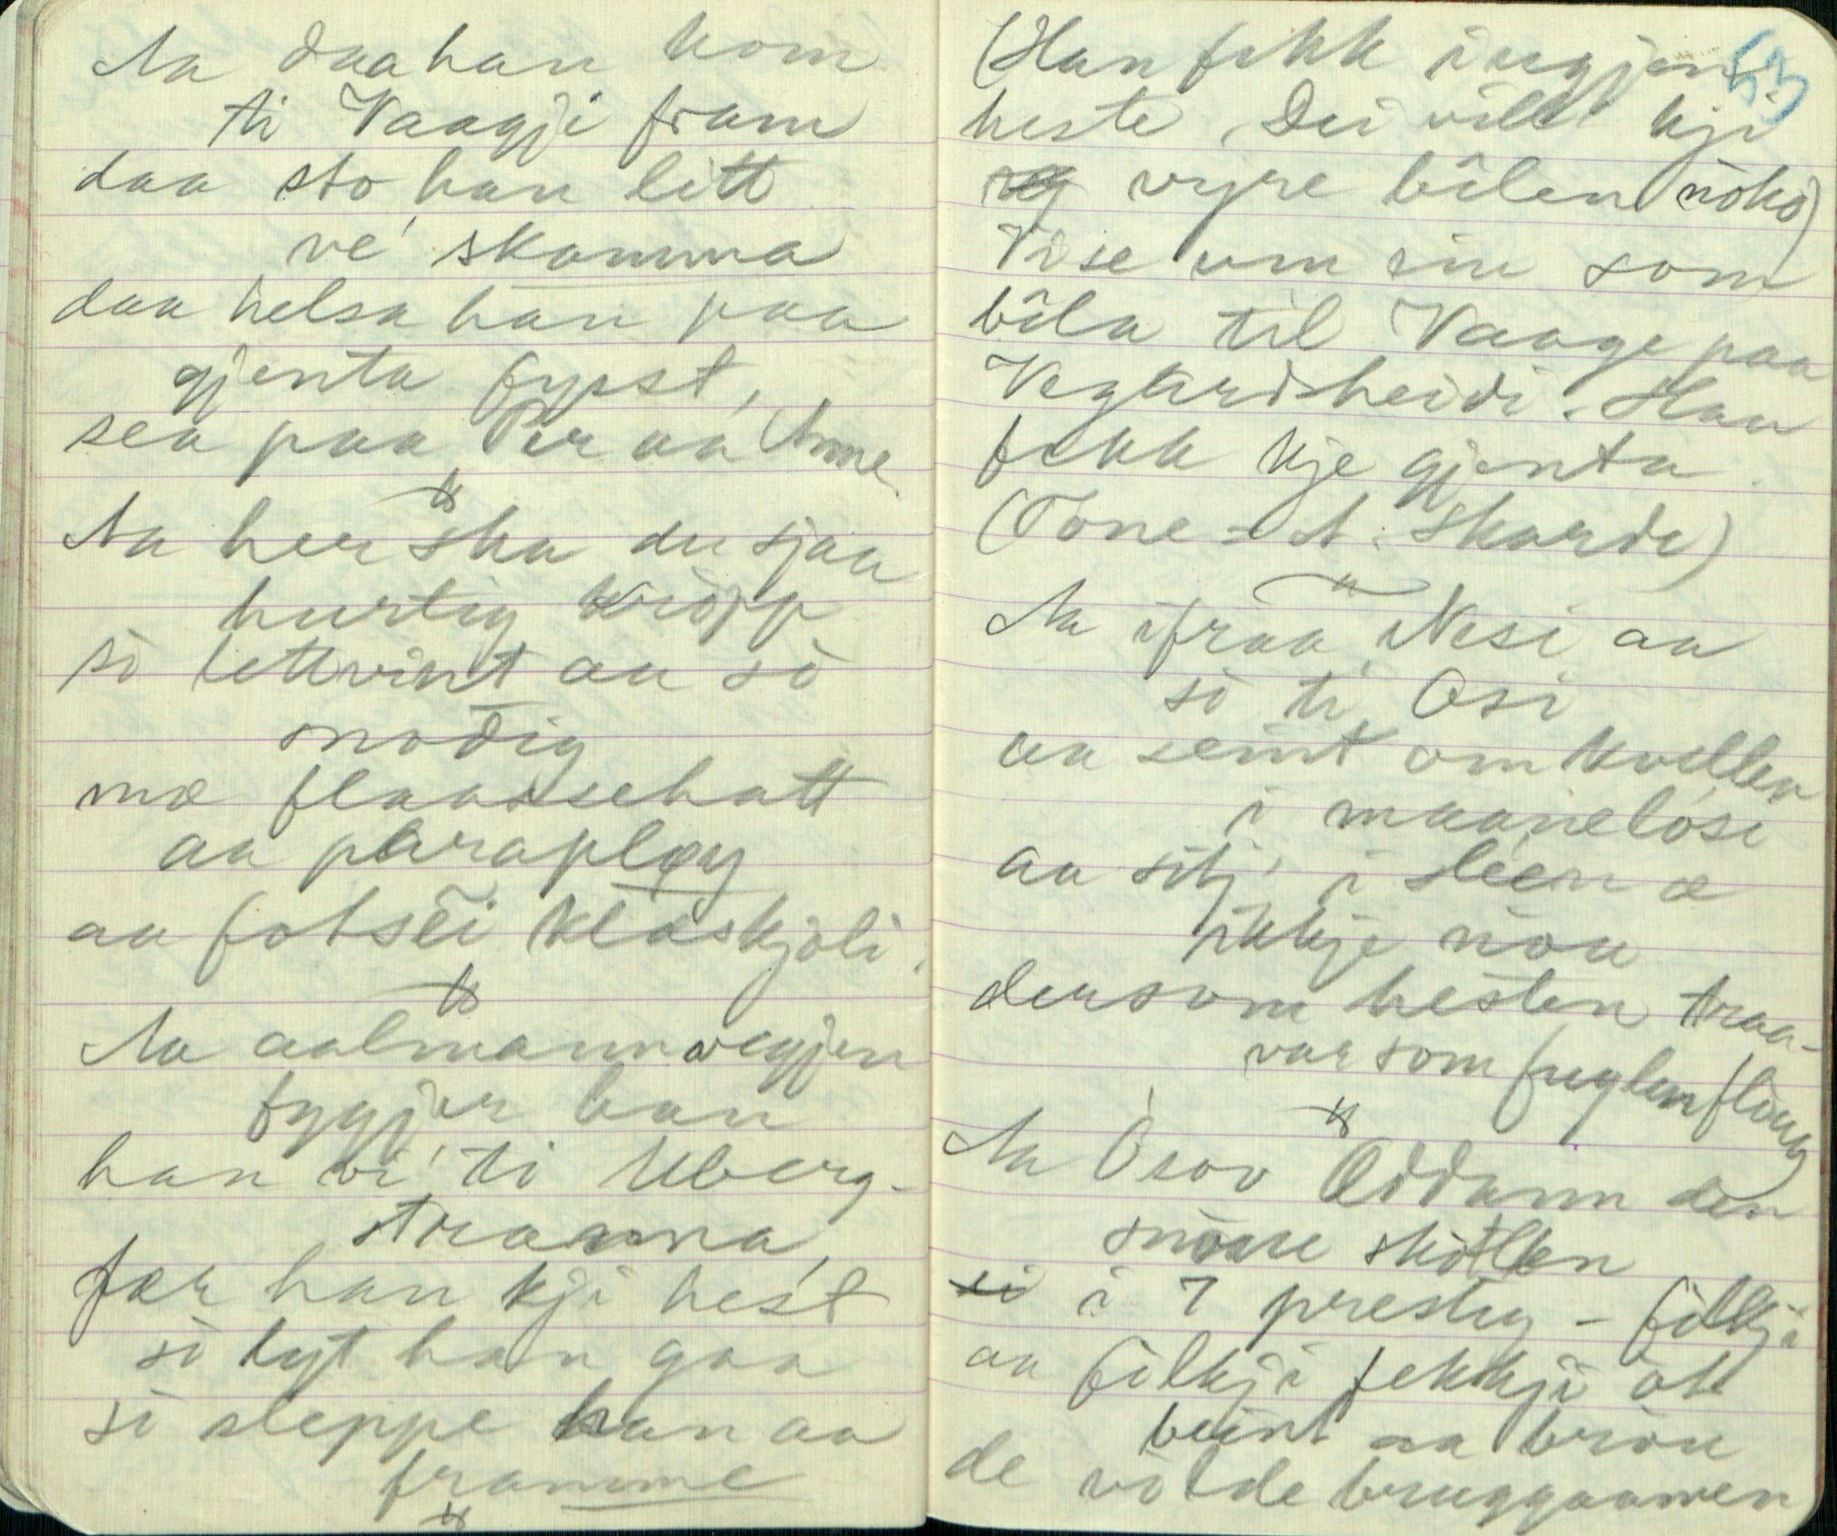 Aa daa han kom
ti Vaagji fram
daa sto han litt
ve' skamma
daa helsa han paa
gjenta fyrst,
sea paa Per aa Anne.
Aa her ska du sjaa
hurtig kròpp
sò lettvint aa sò
modig
mæ flaassehatt
aa paraply
aa fotsei klæskjoli.
Aa aalmannvegjen
fygjer han
han vi' ti Uberg-
stranna,
fær han kji hest
sò lyt han gaa
sò sleppe han aa
framme
53
(Han fekk ingjen
heste. Dei vill' kji
vyre bêlen nòko)
Vise um ein som
bêla til Vaage paa
Vegardsheidi. Han
fekk kje gjenta.
(Tone - A. Skarde)
Aa ifraa Nesi aa
sò ti Osi
aa seint om kvellen
i maaneløsi
aa sitj' i sleen æ
ikkje nòu
dersom hesten traa-
var som fuglen flòug
Aa Òsov Oddann den
snòare skòtlen
i 7 presteg - filkji
aa filkji fekkji òll
beint aa bròu
de vòlde bruggaamen